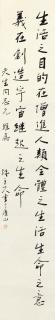 生活之目的在增進人類全體之生活生命之意
義在創造宇宙繼起之生命
同志